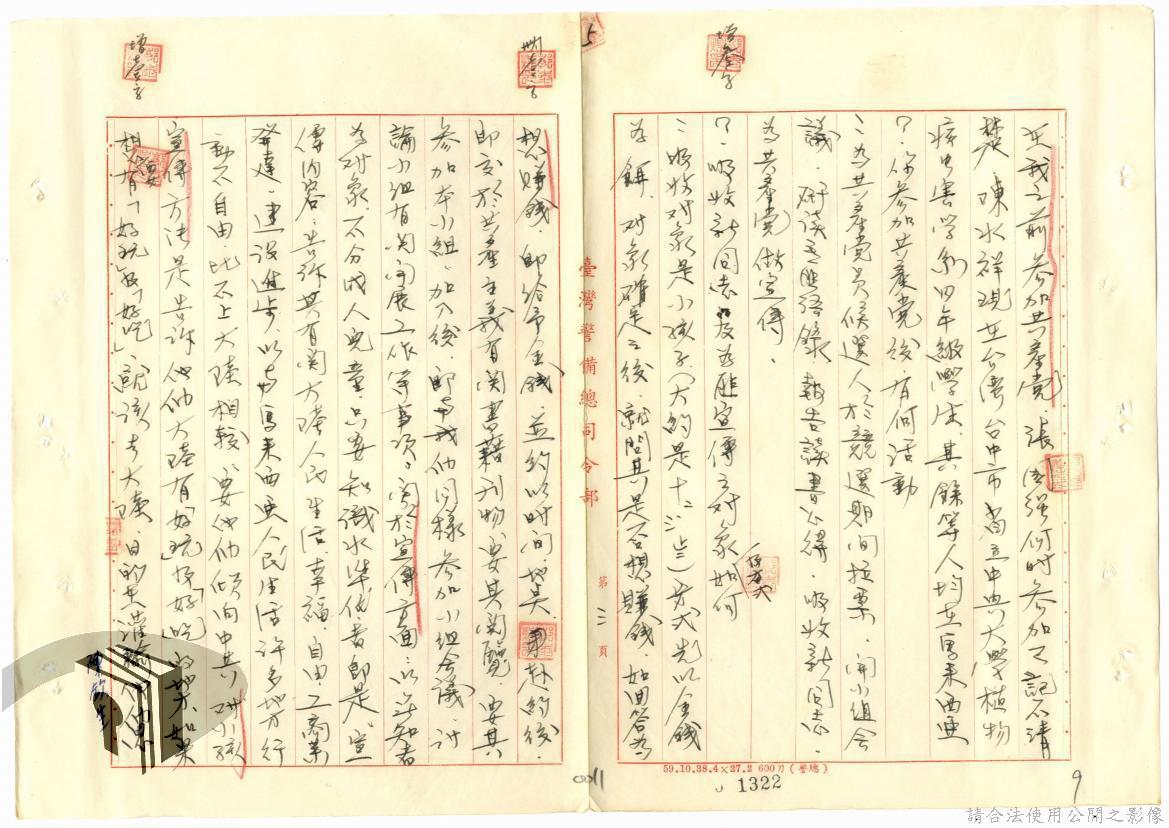 在我之前參加共產黨、張強何時參加又記不清
楚、陳水祥現在台灣台中市省立中興大學植物
病虫害學系四年級學生其餘等人均在馬來西亞
？．你參加共產黨後、有何活動
：為共產黨員候選人於競選期間拉票、開小組會
議、研讀毛匪語錄、報告讀書心得、吸收新同志、
為共產黨做宣傳、
？．吸收新同志及為匪宣傳之對象如何
：吸收對象是小孩子（大約是十二、三）方式先以金錢
為餌、對象確定之後、就問其是否想賺錢、如回答為
想賺錢、即給予金錢並約以時間、地點、赴約後
即交於共產主義有関書藉刊物、要其閱覽、要其
參加本小組、加入後、即與我们同樣參加小組會議、討
論小組有関開展工作等事項。関於宣傳方面：以無知者
為对象、不分成人兒童、只要知識水準低者即是、宣
傳內容：告訴其有関大陸人民生活、幸福、自由、工商業
發達、建設進步、以與馬來西亞人民生活許多地方行
動不自由、比不上大陸相較、要他们傾向中共、对小孩
宣傳方法是告訴他们大陸有「好玩」及「好吃」的地方、如果
想要有「好玩」及「好吃」就該去大陸、目的是灌輸他们思
臺灣警備總司令部
第 頁
59.10.38.4×27.2 600刀(警總)
1322
0011
9
5
增壹字
增叁字
請合法使用公開之影像